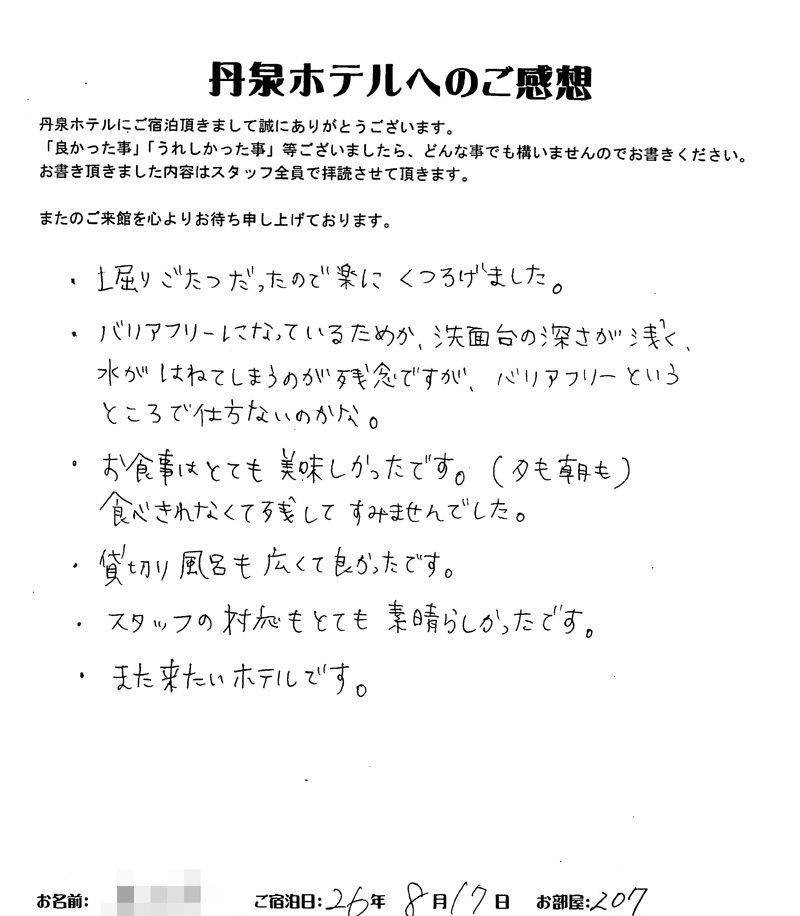 丹泉ホテルへのご感想
丹泉ホテルにご宿泊頂きまして誠にありがとうございます。
「良かった事」「うれしかった事」等ございましたら、どんな事でも構いませんのでお書きください。
お書き頂きました内容はスタッフ全員で拝読させて頂きます。
またのご来館を心よりお待ち申し上げております。
・堀りごたつだったので楽にくつろげました。
・バリアフリーになっているためか、洗面台の深さが浅く、
水がはねてしまうのが残念ですが、バリアフリーという
ところで仕方ないのかな。
・お食事はとても美味しかったです。(夕も朝も)
食べきれなくて残してすみませんでした。
・貸切り風呂も広くて良かったです。
・スタッフの対応もとても素晴らしかったです。
・また来たいホテルです。
お名前: ご宿泊日:26年 8月17日 お部屋:207